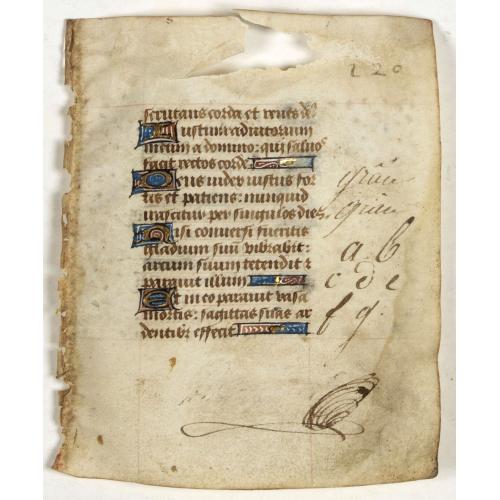 220
scrutans corda et renes de⁹
Iustum adiutorium
meum a domino: qui saluos
facit rectos corde
Deus iudex iustus for
tis et paciens: nunquid
irascitur per singulos dies
Nisi conuersi fueritis
gladium suū vibrabit:
arcum suum tetendit et
parauit illum
Et in eo parauit vasa
mortis: sagittas suas ar
dentibꝰ effecit
a b
c d e
f g